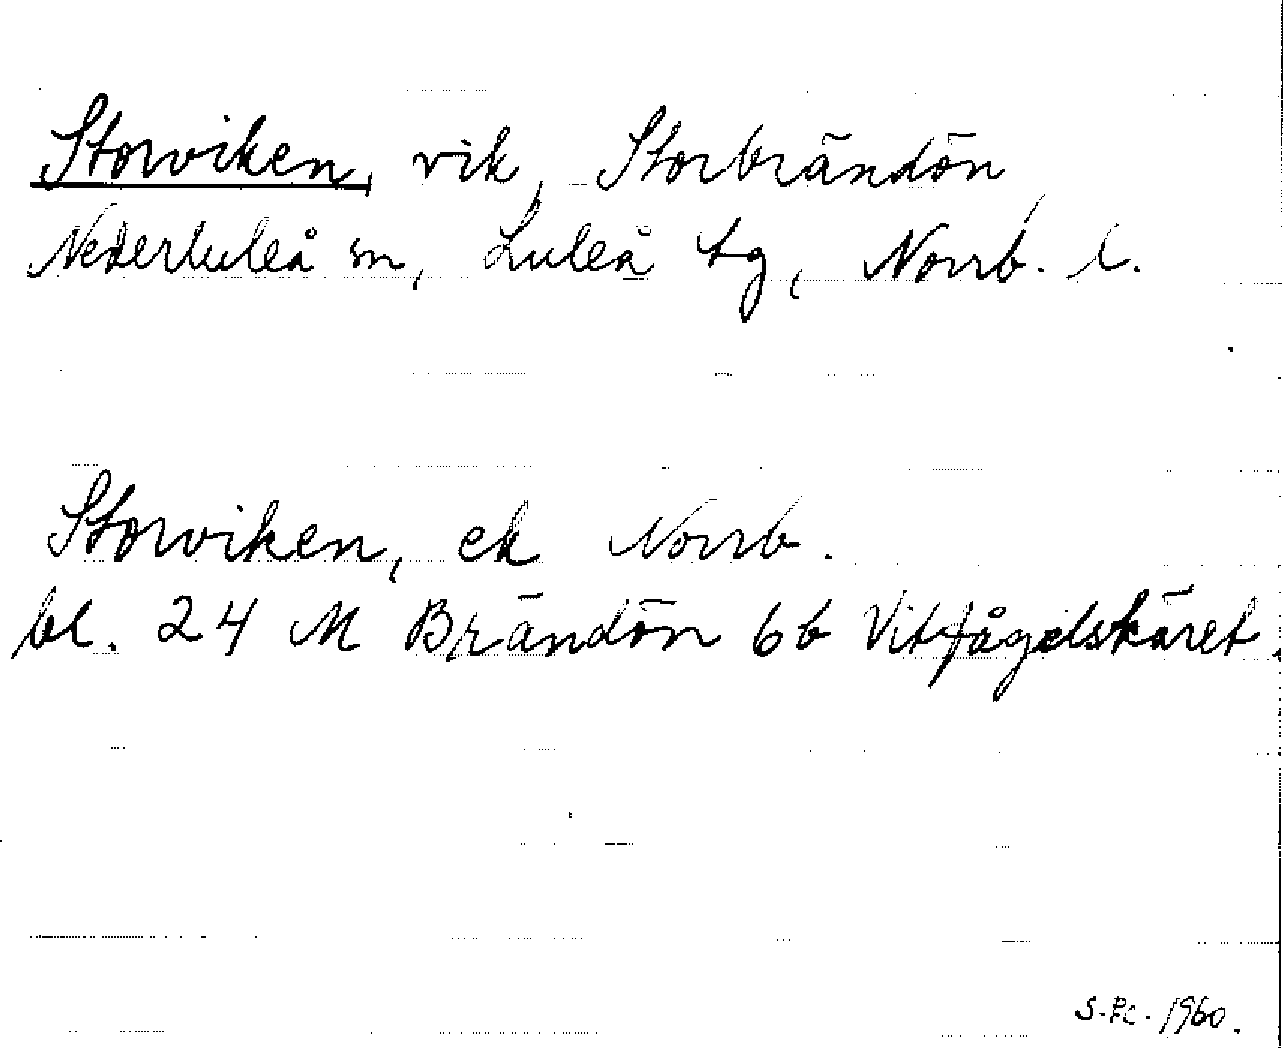 Storviken, vik, Storbrändön
Nederluleå sn, Luleå tg, Norrb. l.
Storviken, ek Norrb.
bl. 24 M Brändön 6b Vitfågelskäret.
1960.